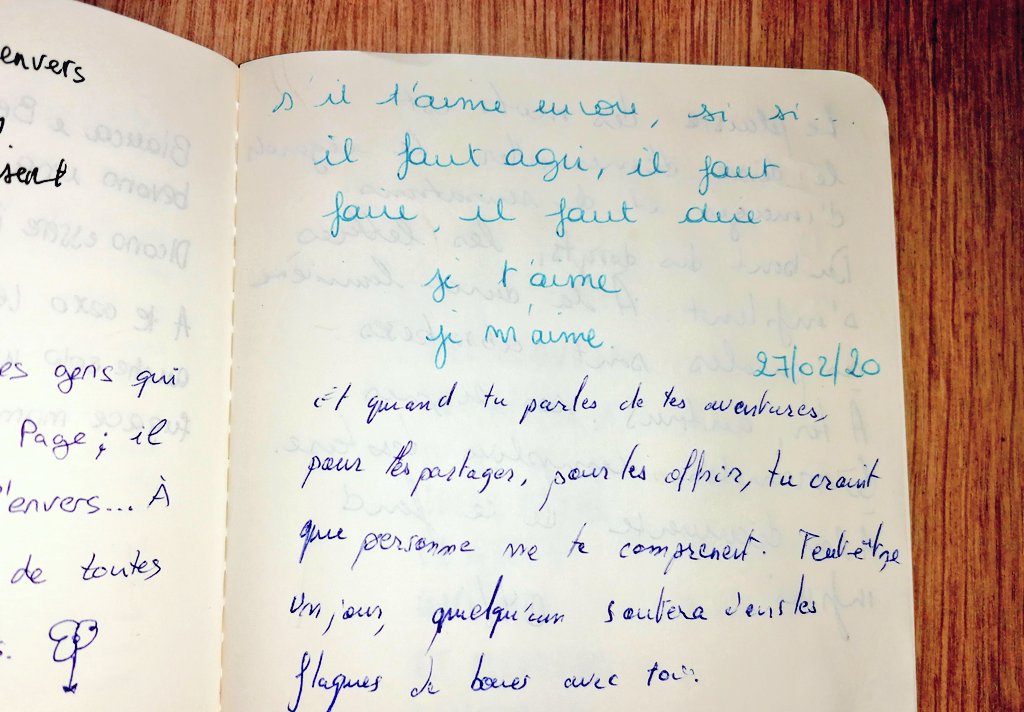 envers
sent
es gens qui
Page ; il
l'envers... À
de toutes
s'il t'aime encore, si si
il faut agir, il faut
faire, il faut dire
je t'aime
je m'aime.
27/02/20
Et quand tu parles de tes aventures,
pour les partager, pour les offrir, tu craint
que personne ne te comprenent. Peut-être,
Un jour, quelqu'un sautera dans les
flaques de boues avec toi.